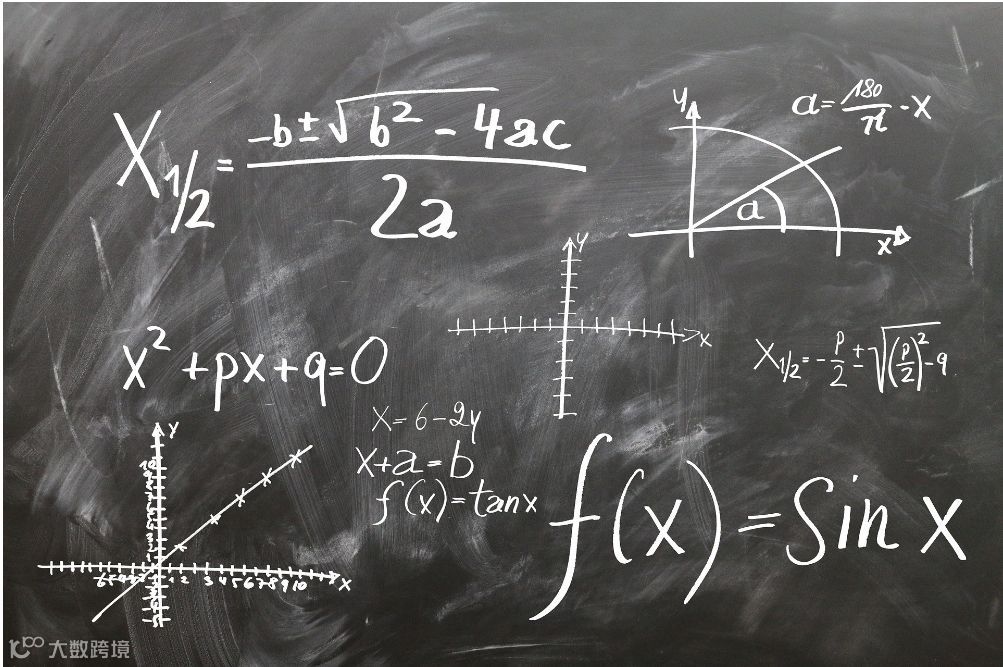 X₁/₂ = (-b ± √(b² - 4ac)) / 2a
y
a = 180/π · x
a
x
y
x
x² + px + q = 0
X₁/₂ = -p/2 ± √((p/2)² - q)
x = 6 - 2y
x + a = b
f(x) = tan x
f(x) = sin x
y
10
1 2 3 4 5 6 7 8 9 10
x
大数跨境